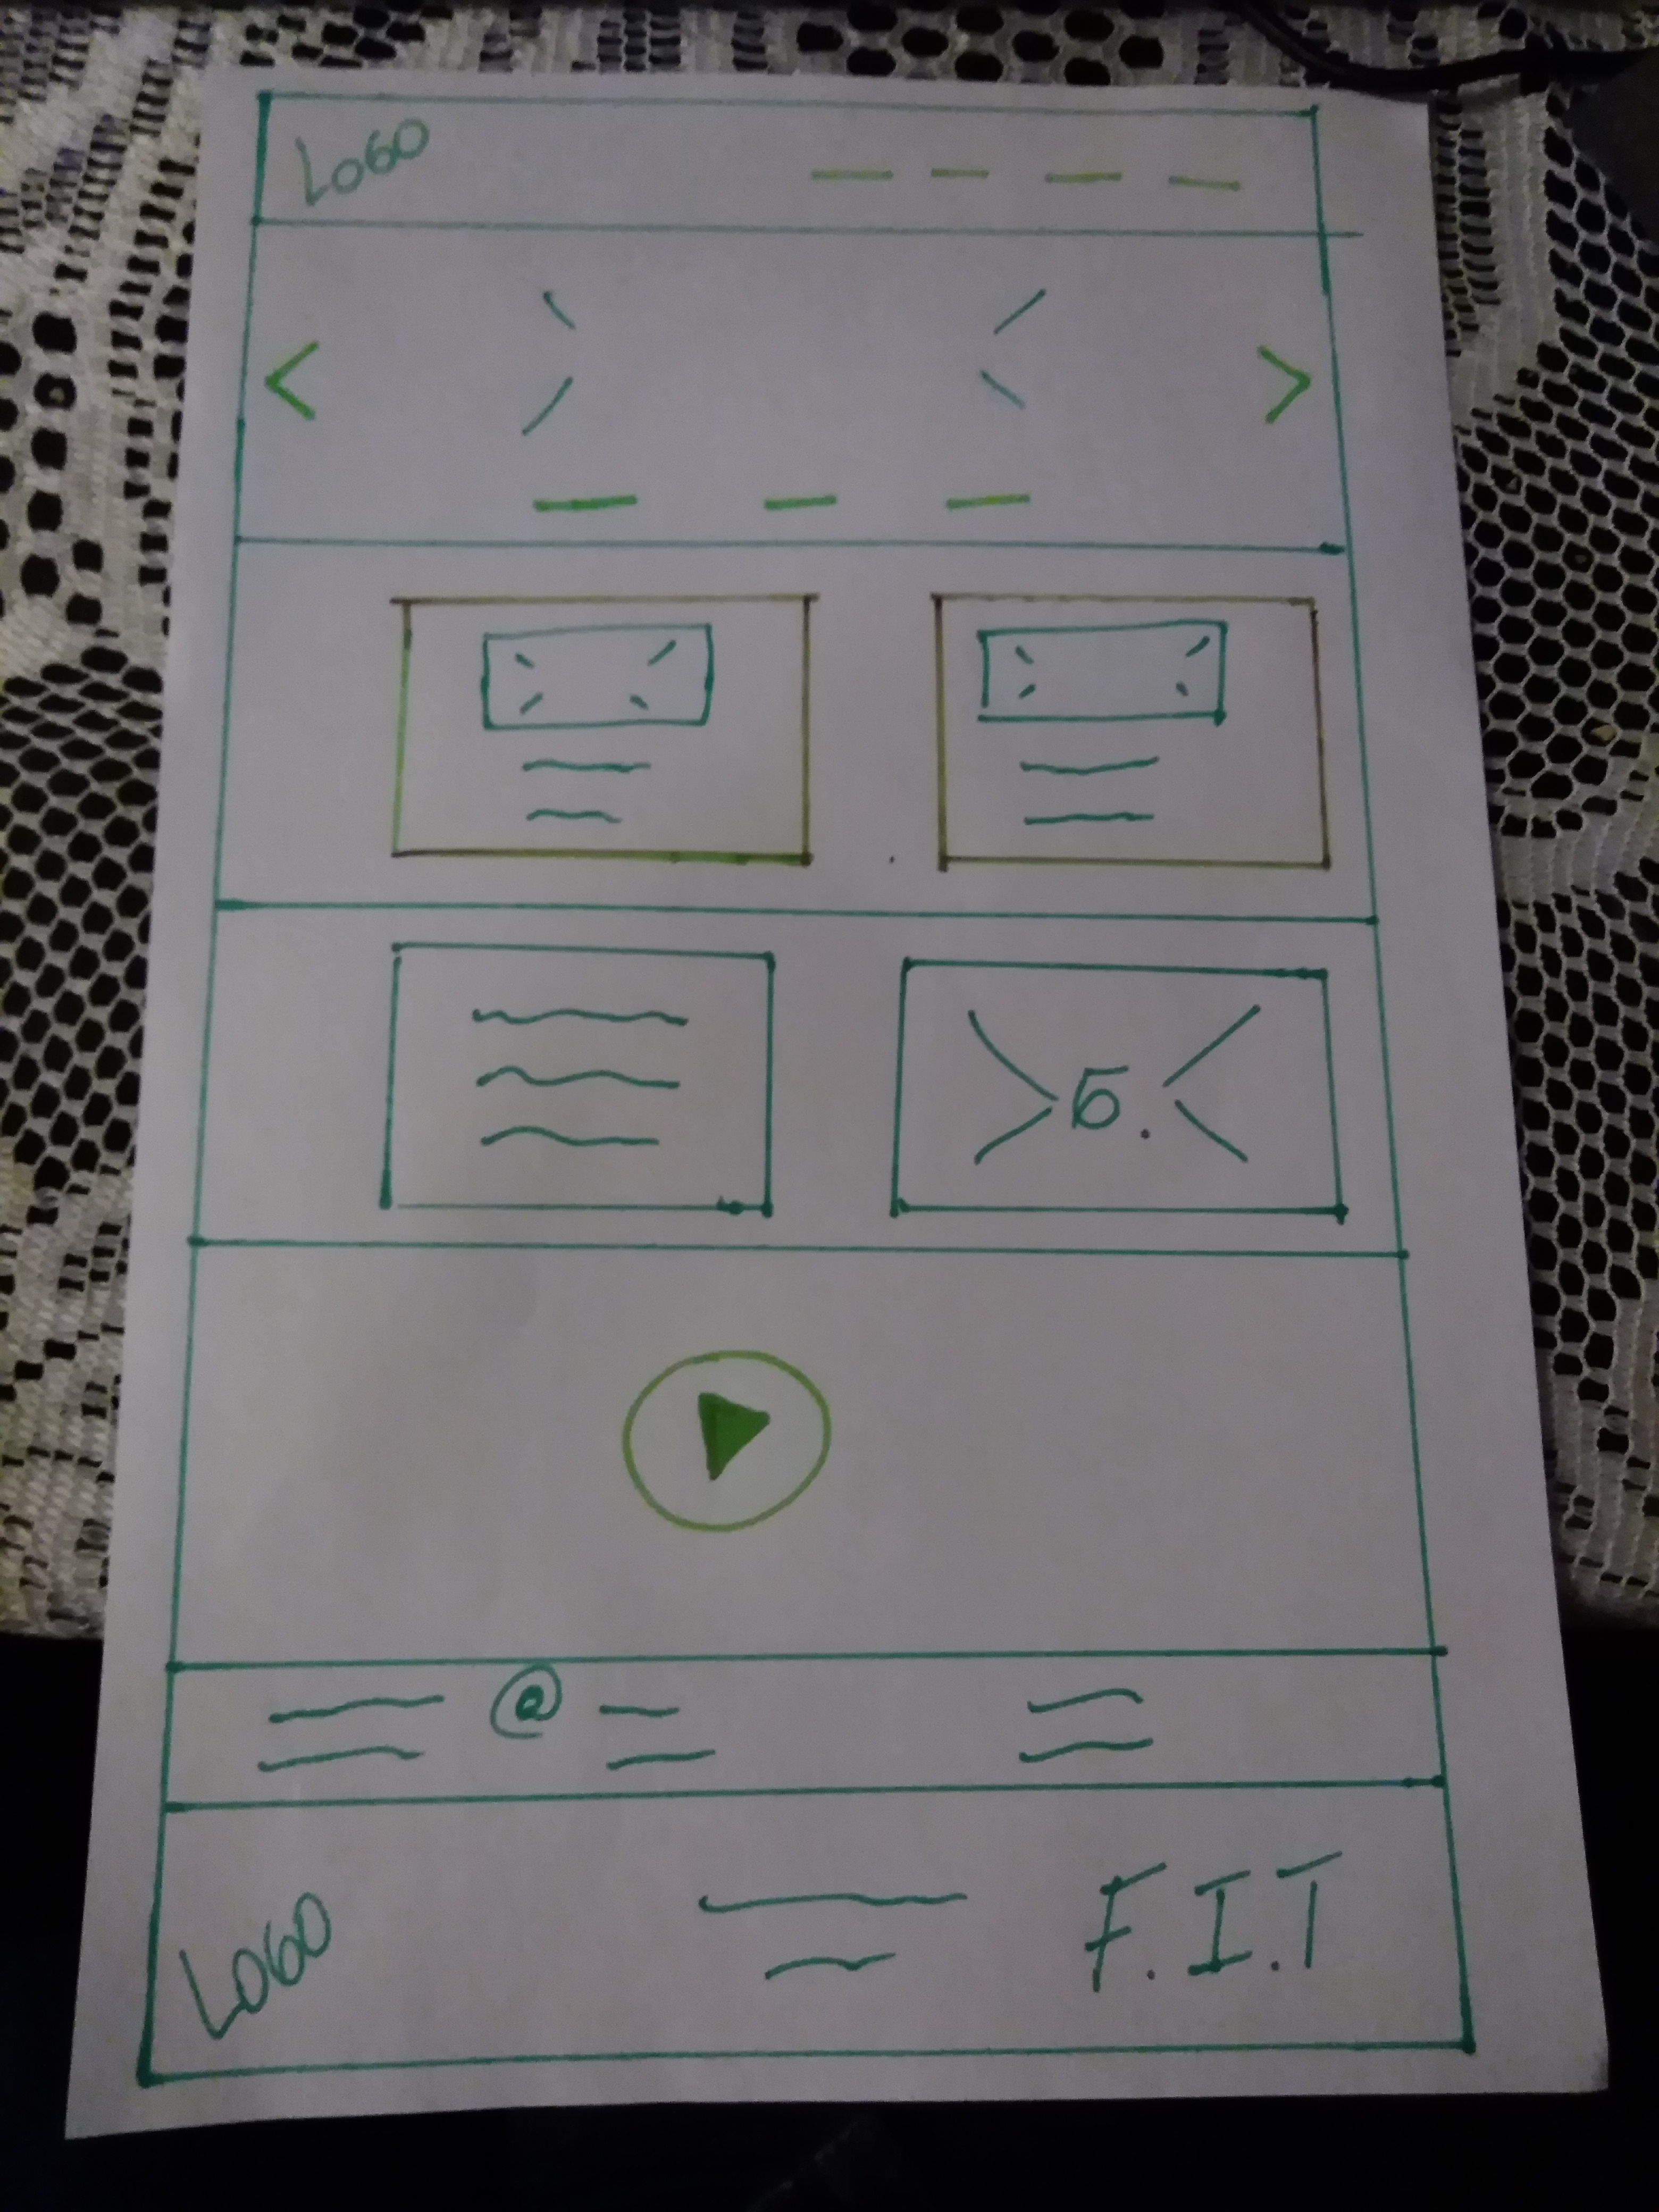 LOGO
G.
@
LOGO
F.I.T